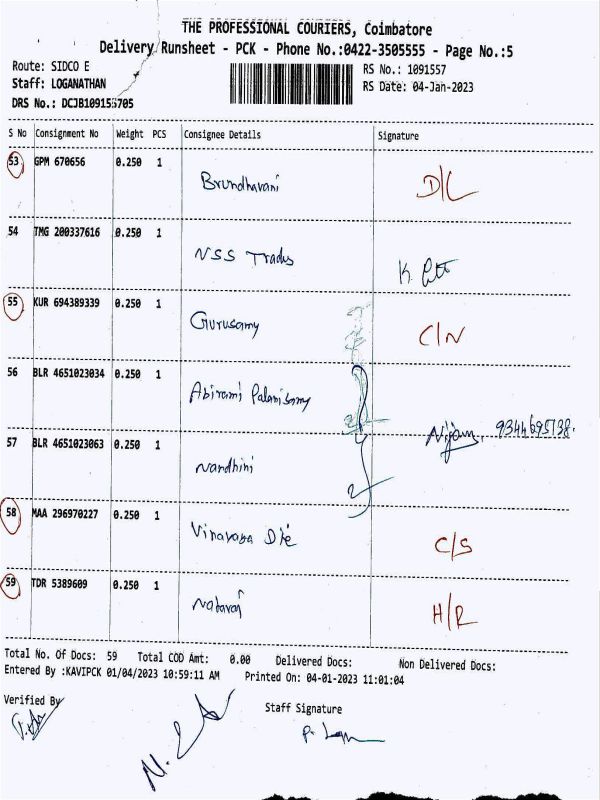 THE PROFESSIONAL COURIERS, Coimbatore
Delivery Runsheet - PCK - Phone No.:0422-3505555 - Page No.:5
Route: SIDCO E
RS No.: 1091557
Staff: LOGANATHAN
RS Date: 04-Jan-2023
DRS No.: DCJB109155705
S No Consignment No Weight PCS Consignee Details Signature
53 GPM 670656 0.250 1 Brundhavani D/L
54 TMG 200337616 0.250 1 NSS Trades K.
55 KUR 694389339 0.250 1 Gurusamy C/N
56 BLR 4651023034 0.250 1 Abirami Palanisamy
Nijam. 9344695738.
57 BLR 4651023063 0.250 1 Nandhini
58 MAA 296970227 0.250 1 Vinayaga Die C/S
59 TDR 5389609 0.250 1 Nataraj H/R
Total No. Of Docs: 59 Total COD Amt: 0.00 Delivered Docs: Non Delivered Docs:
Entered By :KAVIPCK 01/04/2023 10:59:11 AM Printed On: 04-01-2023 11:01:04
Verified By
Staff Signature